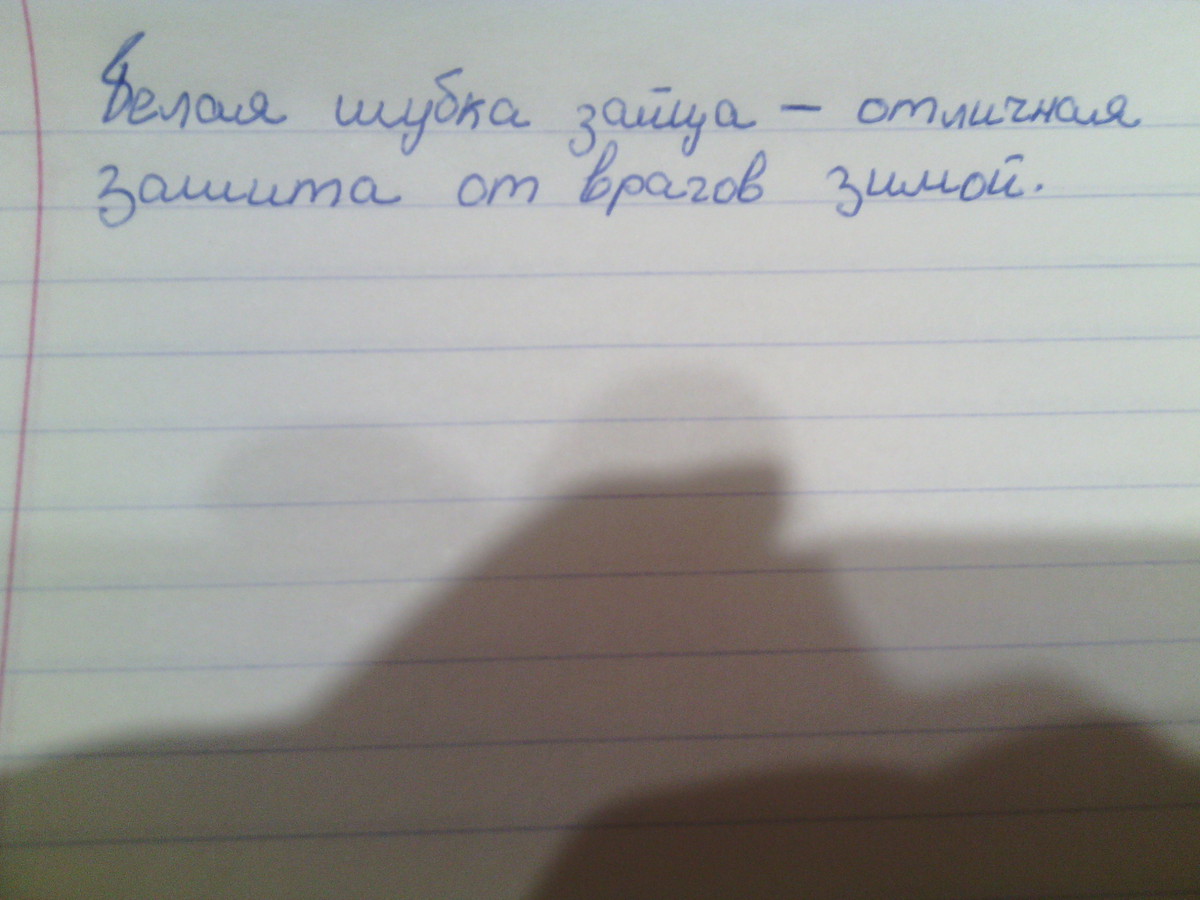 Белая шубка зайца – отличная
защита от врагов зимой.